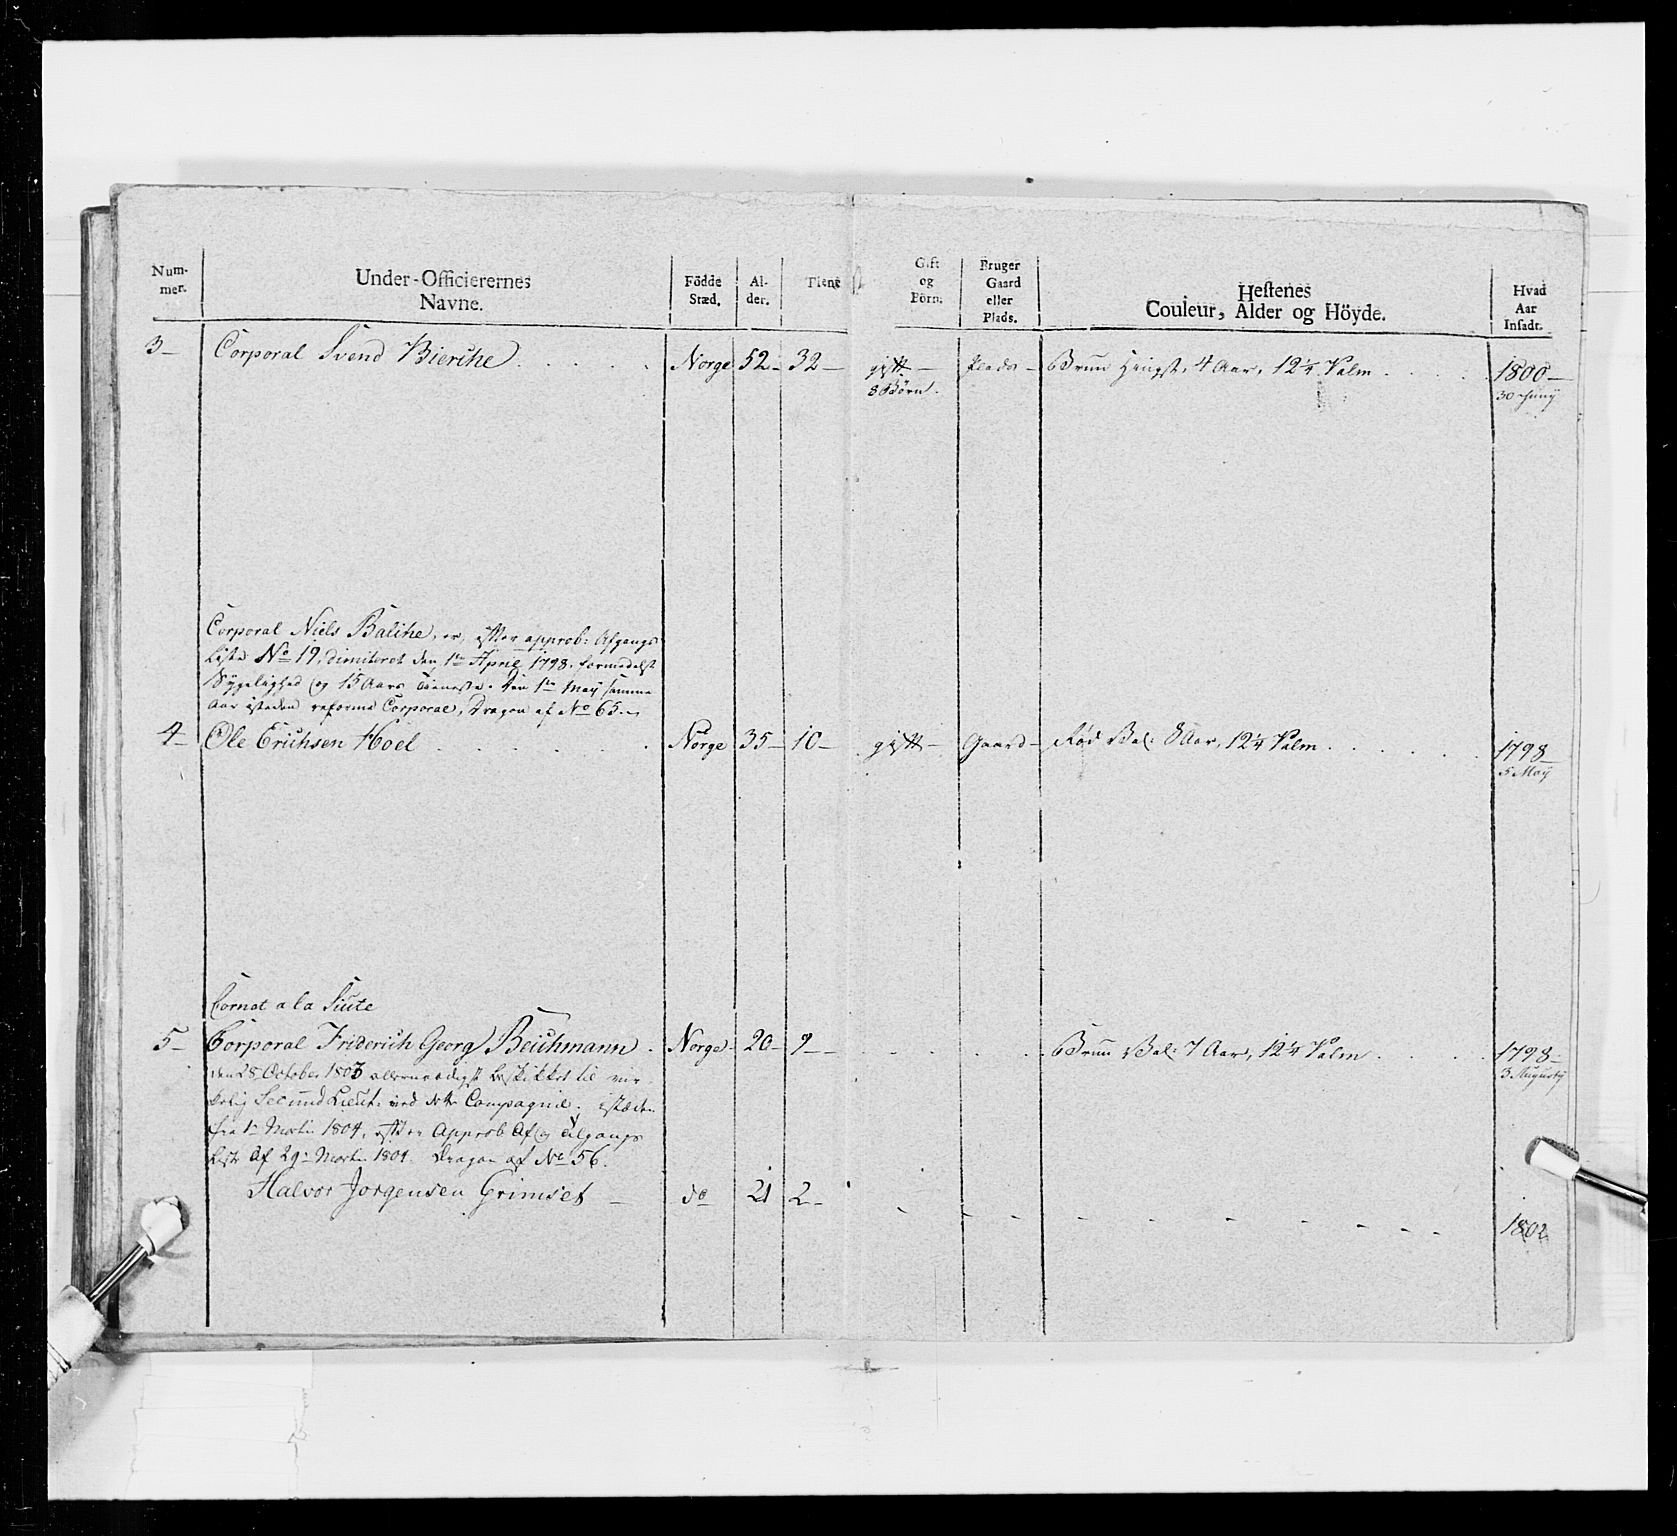 Num-
mer.
Under-Officierernes
Navne.
Födde
Stæd.
Al-
der.
Tient
Gift
og
Börn.
Bruger
Gaard
eller
Plads.
Hestenes
Couleur, Alder og Höyde.
Hvad
Aar
Insadt.
3 – Corporal Svend Bierche . . . . Norge 52 – 32 – gift – Plads – Bruun Hingst, 4 Aar, 12¼ Palm . . . . 1800 –
8 Børn. 30 Juny
Corporal Niels Balche, er, efter approb: Afgangs
Liste No 19, dimiteret den 1te April 1798, formedelst
Sygelighed og 15 Aars Tieneste. Den 1te May samme
Aar isteden reforme Corporal, Dragon af No 65. –
4 – Ole Erichsen Hoel . . . . . Norge 35 – 10 – gift – Gaard – Rød Val: 8 Aar, 12¼ Palm . . . . . 1798 –
5 May
Cornet a la Suite
5 – Corporal Friderich Georg Beichmann . Norge – 20 – 9 – . . . . . Bruun Val: 7 Aar, 12¼ Palm . . . . 1798 –
3 Augusty
den 28 October 1803 allernaadigst beskikket til vir-
kelig Secund Lieut: ved Compagnie; istæden
fra 1te Martii 1804, efter Approb Af og Tilgangs
Liste Af 29 Martii 1804. Dragon af No 56.
Halvor Jorgensen Grimset – do 21 2 – 1802